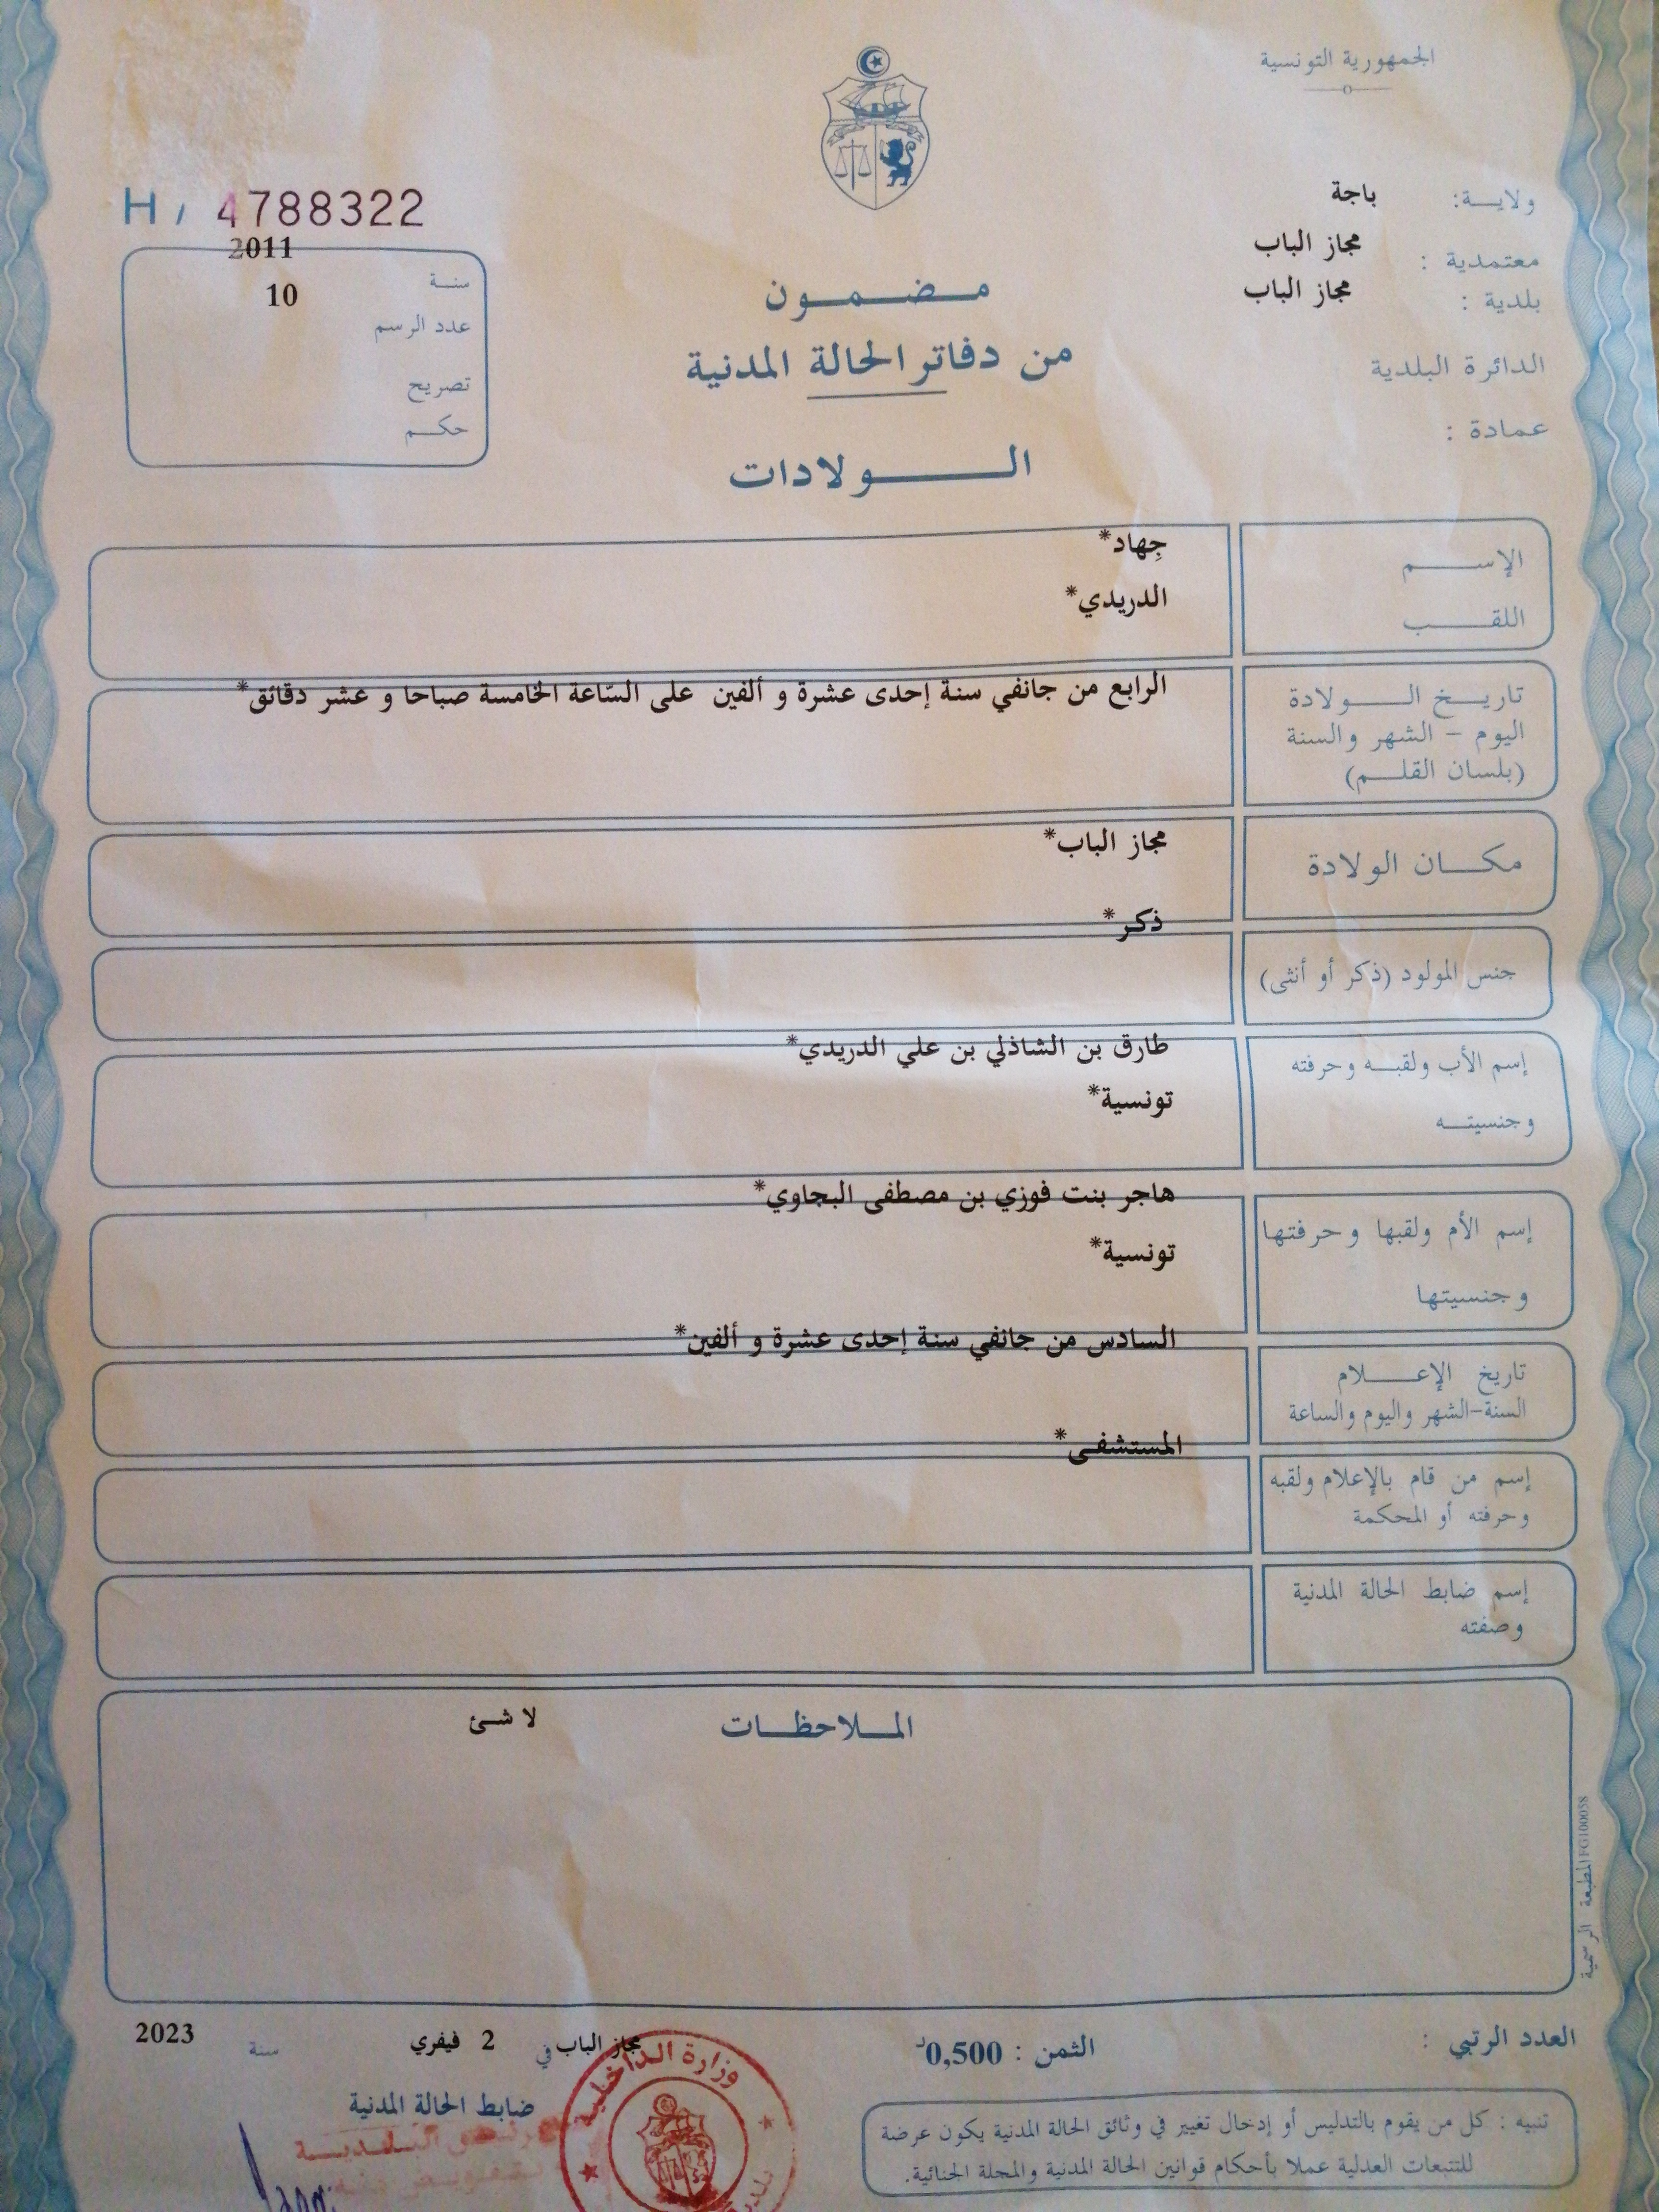 الجمهورية التونسية
ولايـــة: باجة
معتمدية : مجاز الباب
بلدية : مجاز الباب
الدائرة البلدية
عمادة :
H / 4788322
سنة 2011
عدد الرسم 10
تصريح
حكم
مضمون
من دفاتر الحالة المدنية
الولادات
الإسم جِهاد*
اللقب الدريدي*
تاريخ الولادة الرابع من جانفي سنة إحدى عشرة و ألفين على السّاعة الخامسة صباحا و عشر دقائق*
اليوم - الشهر والسنة
(بلسان القلم)
مكان الولادة مجاز الباب*
جنس المولود (ذكر أو أنثى) ذكر*
إسم الأب ولقبه وحرفته طارق بن الشاذلي بن علي الدريدي*
وجنسيته تونسية*
إسم الأم ولقبها وحرفتها هاجر بنت فوزي بن مصطفى البجاوي*
وجنسيتها تونسية*
تاريخ الإعلام السادس من جانفي سنة إحدى عشرة و ألفين*
السنة-الشهر واليوم والساعة
إسم من قام بالإعلام ولقبه المستشفى*
وحرفته أو المحكمة
إسم ضابط الحالة المدنية
وصفته
الملاحظات لا شئ
المطبعة الرسمية FG100058
العدد الرتبي :
الثمن : 0,500د
مجاز الباب في 2 فيفري سنة 2023
ضابط الحالة المدنية
وزارة الداخلية
تنبيه : كل من يقوم بالتدليس أو إدخال تغيير في وثائق الحالة المدنية يكون عرضة
للتتبعات العدلية عملا بأحكام قوانين الحالة المدنية والمجلة الجنائية.